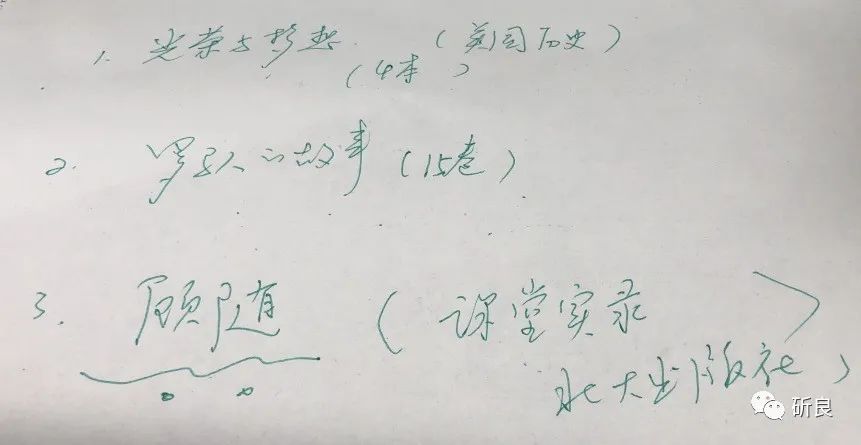 1. 光荣与梦想 (美国历史)
(4本)
2. 罗马人的故事 (15卷)
3. 顾随 (课堂实录
北大出版社)
昕良